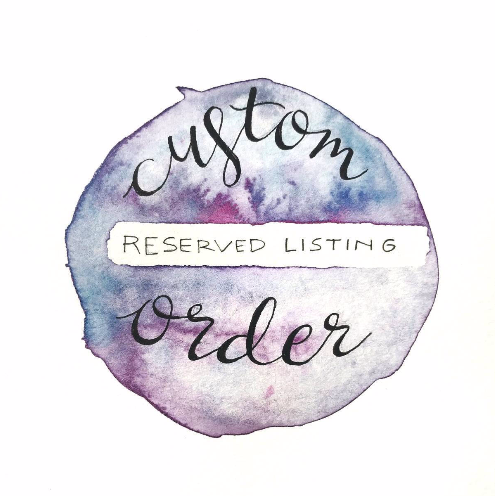 custom
RESERVED LISTING
order